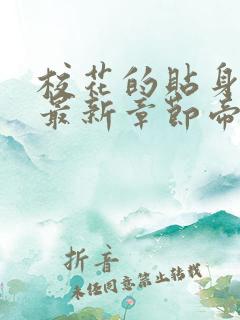 校花的贴身
最新章节帝
折音
未经同意禁止转载